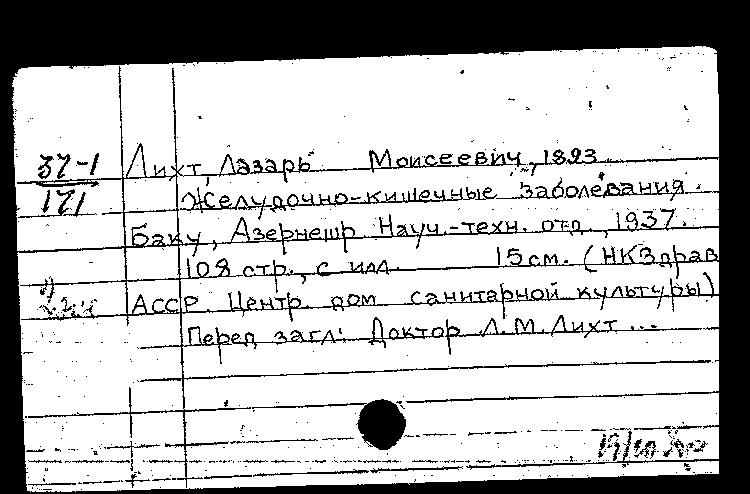 37-1
171
Лихт, Лазарь Моисеевич, 1893.
Желудочно-кишечные заболевания.
Баку, Азернешр Науч.-техн. отд., 1937.
108 стр., с илл. 15 см. (НКЗдрав
АССР. Центр. дом санитарной культуры)
Перед загл: Доктор Л. М. Лихт ...